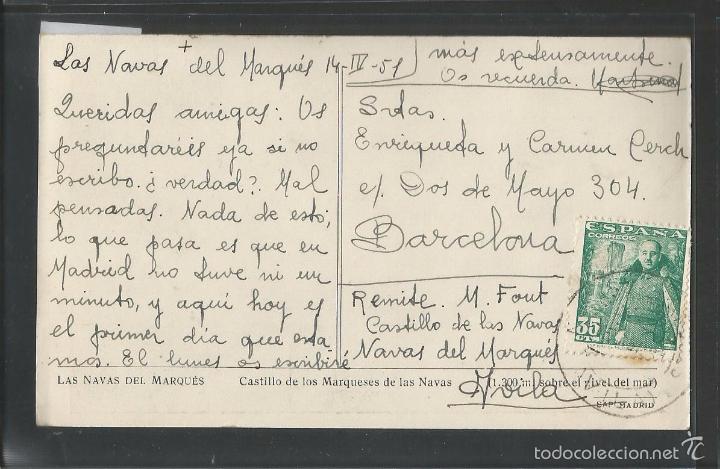 Las Navas del Marqués 14-IV-51
Queridas amigas: Os
preguntaréis ya si no
escribo. ¿verdad?. Mal
pensadas. Nada de esto;
lo que pasa es que en
Madrid no tuve ni un
minuto, y aquí hoy es
el primer día que esta
mos. El lunes os escribiré
más extensamente.
Os recuerda.
Srtas.
Enriqueta y Carmen Cerch
c/ Dos de Mayo 304.
Barcelona
Remite. M. Font
Castillo de las Navas
Navas del Marqués
Avila
ESPAÑA
CORREOS
35
CTS
LAS NAVAS DEL MARQUÉS Castillo de los Marqueses de las Navas (1.300 m. sobre el nivel del mar)
MADRID
todocoleccion.net
TC